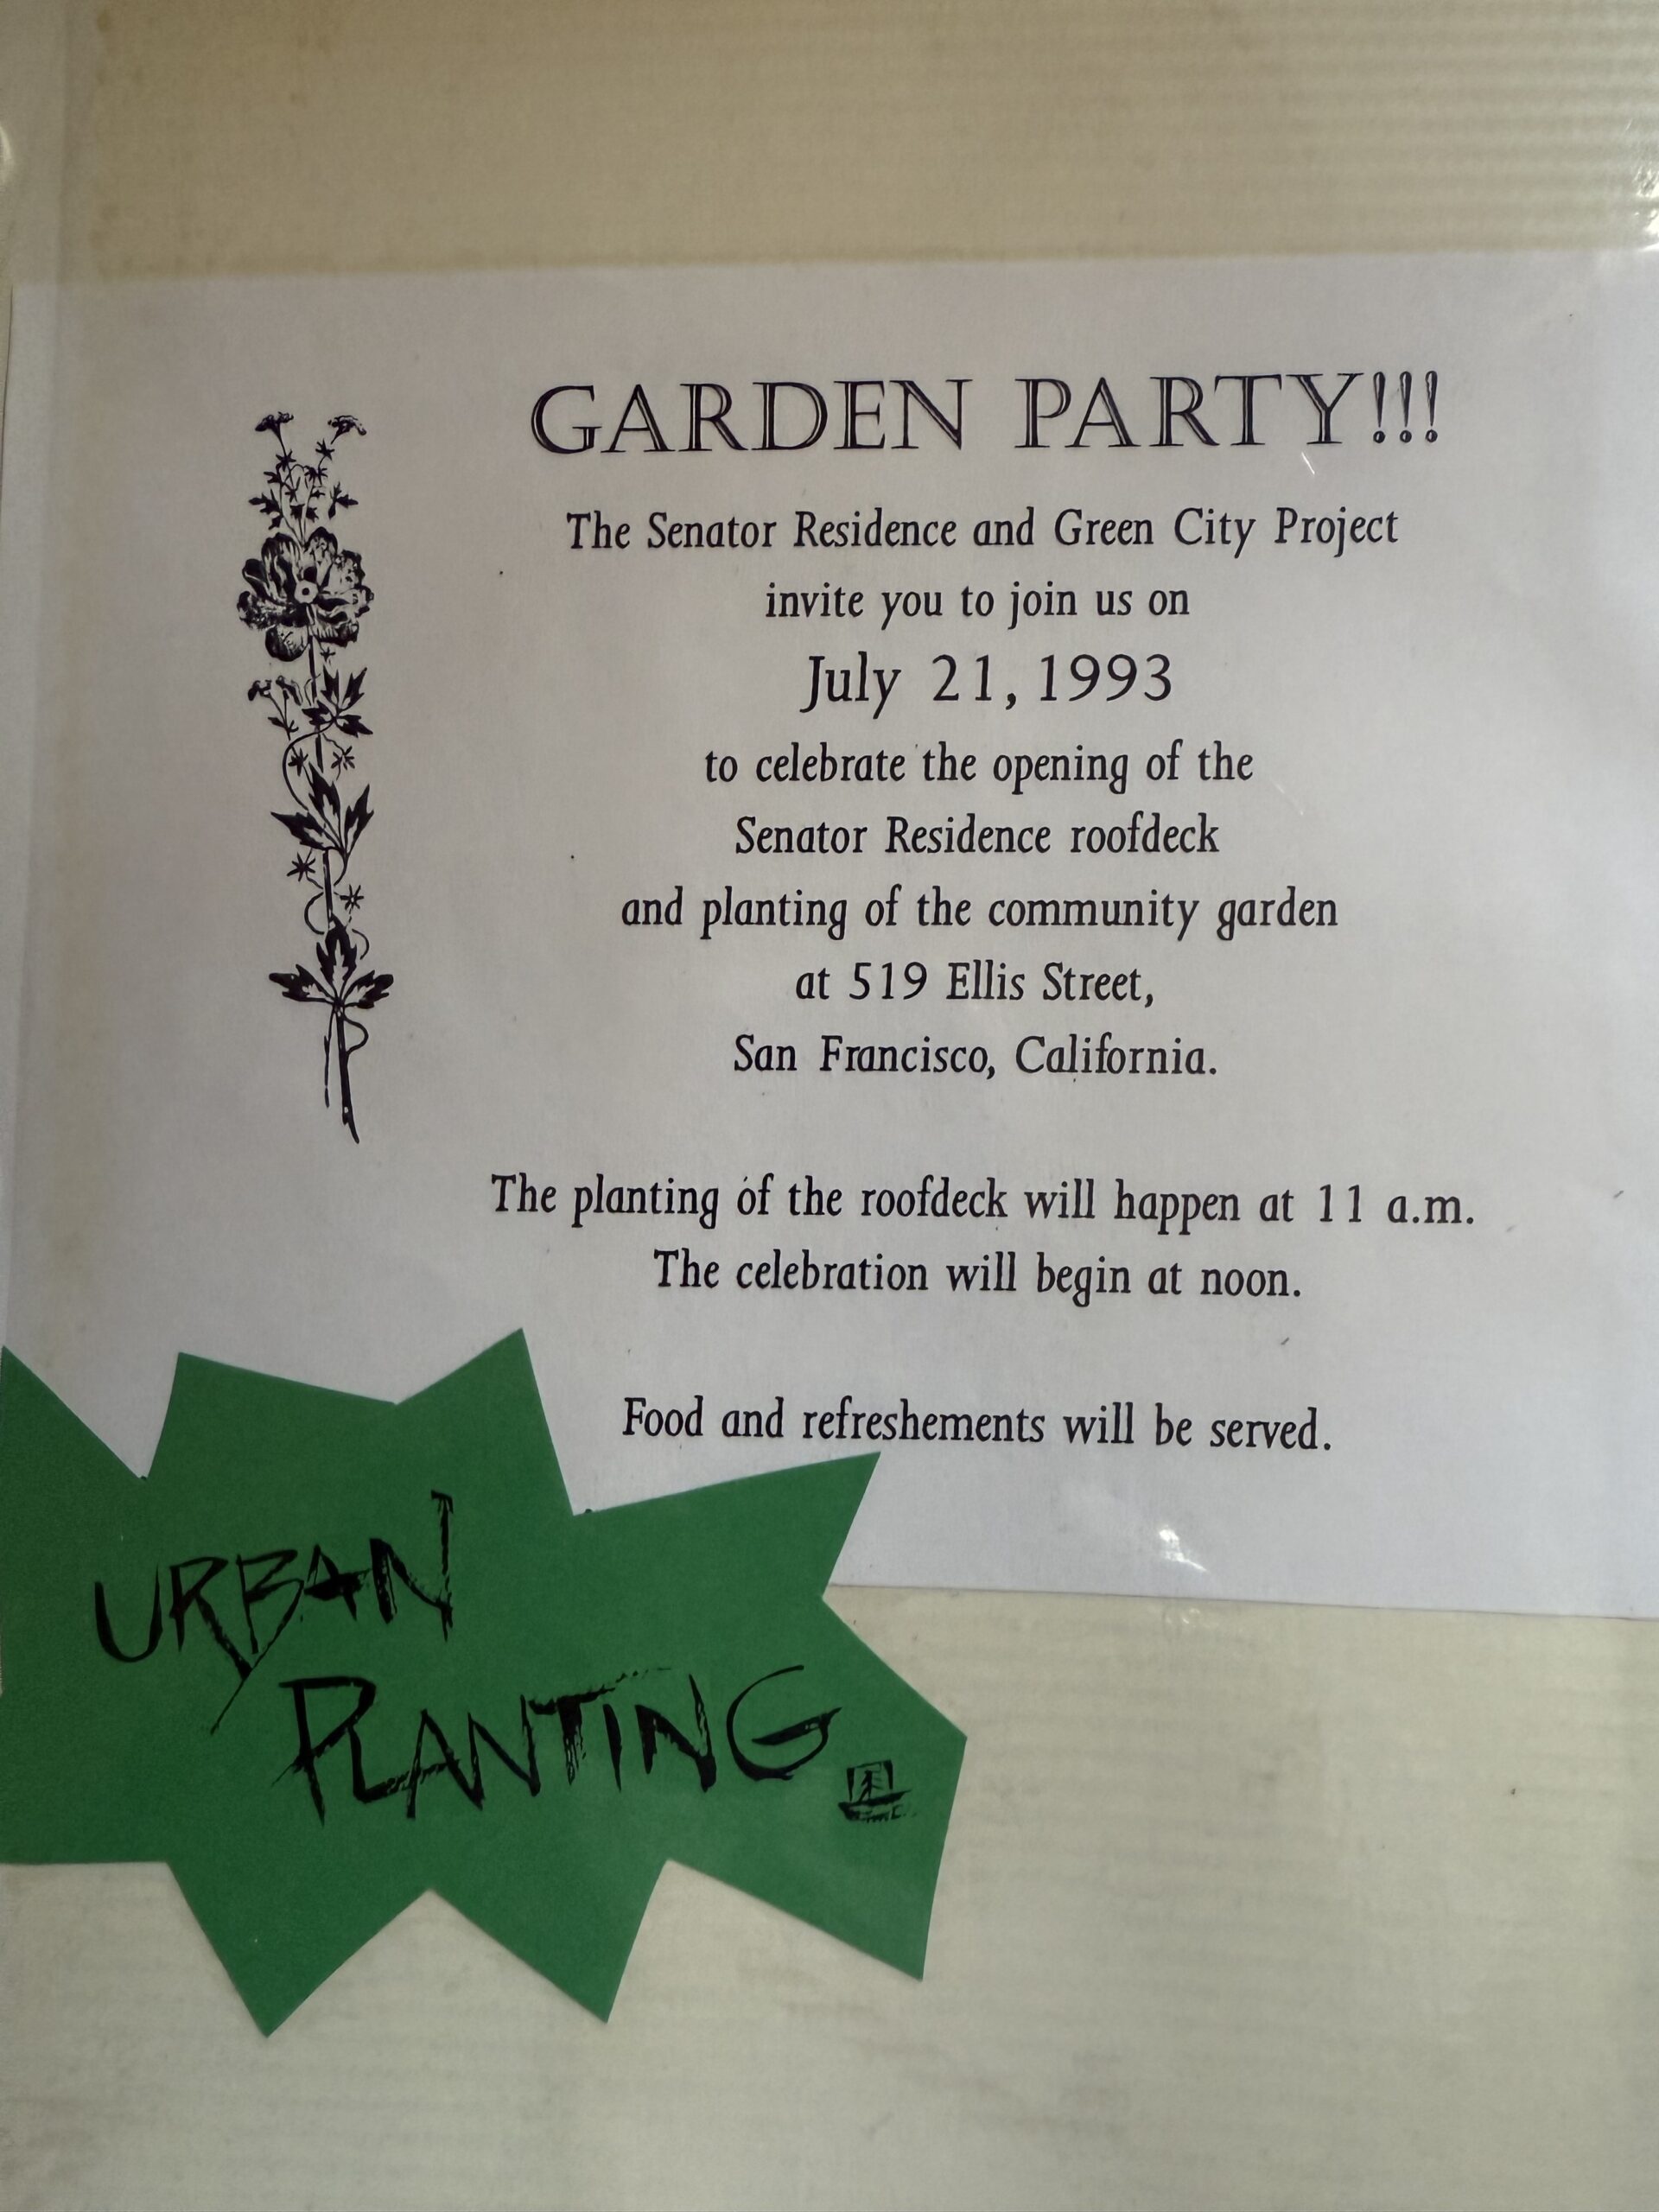 GARDEN PARTY!!!
The Senator Residence and Green City Project
invite you to join us on
July 21, 1993
to celebrate the opening of the
Senator Residence roofdeck
and planting of the community garden
at 519 Ellis Street,
San Francisco, California.
The planting of the roofdeck will happen at 11 a.m.
The celebration will begin at noon.
Food and refreshements will be served.
URBAN
PLANTING